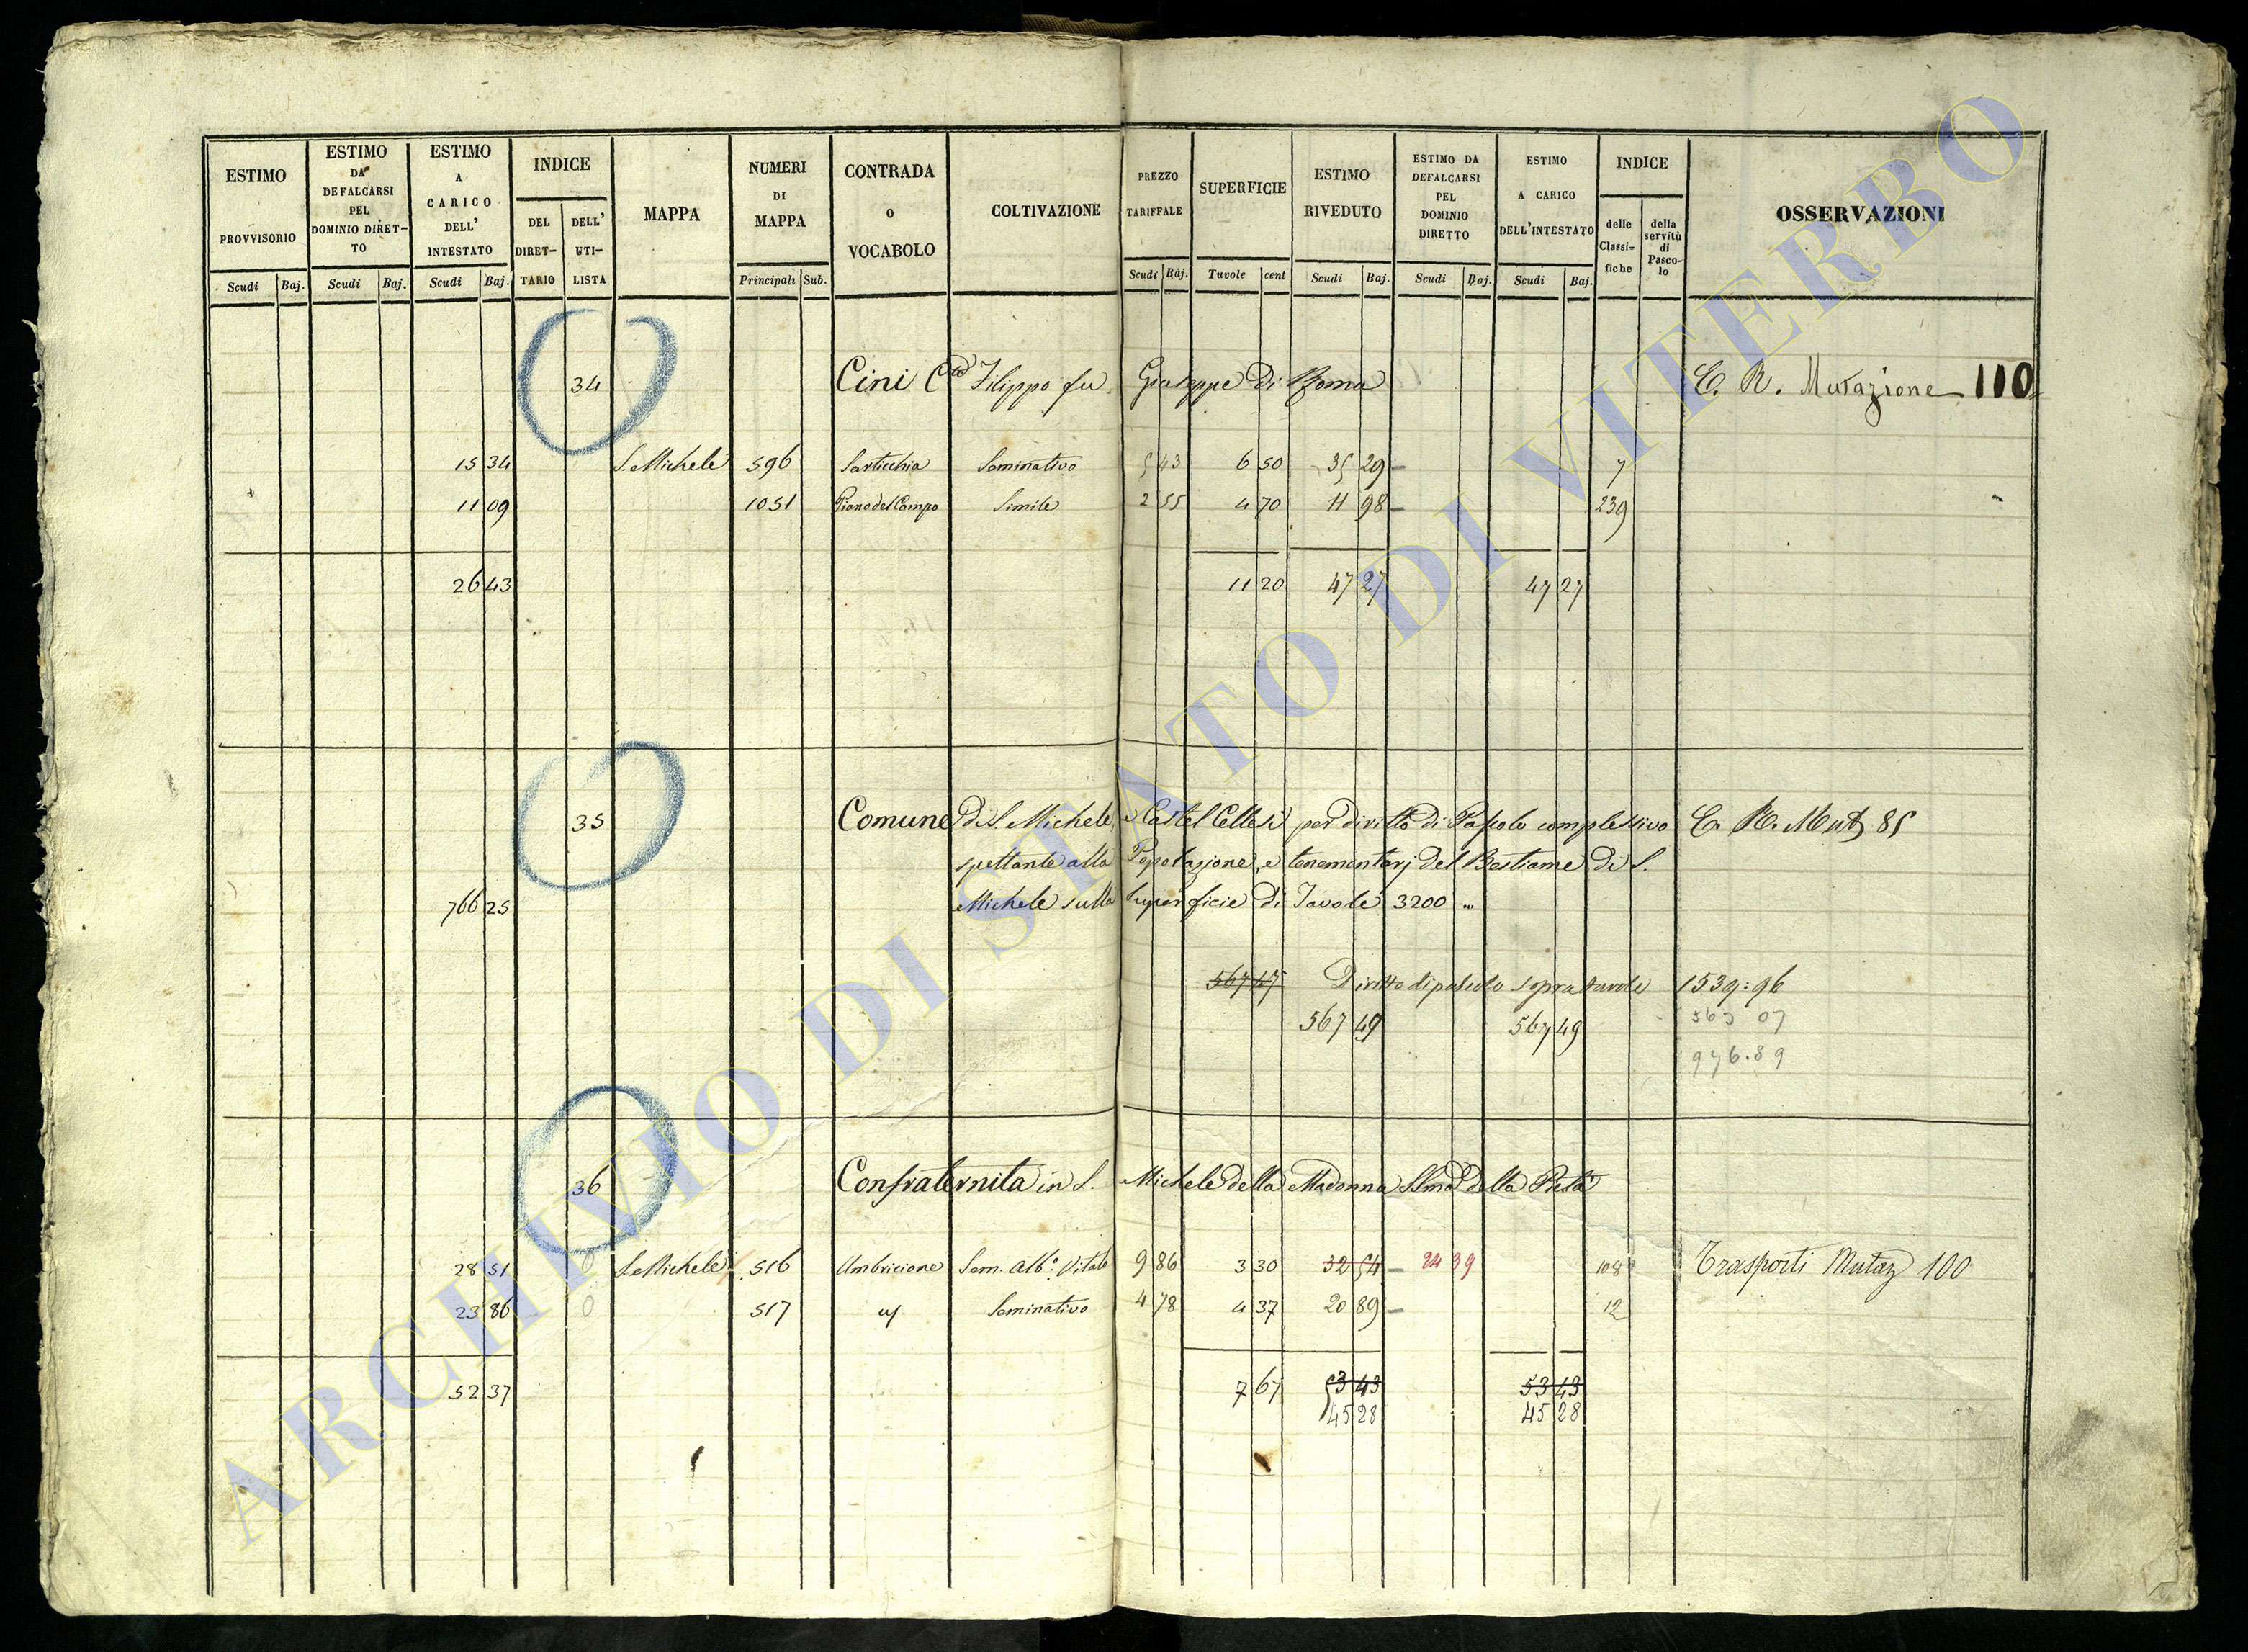 ESTIMO PROVVISORIO
Scudi Baj.
ESTIMO DA DEFALCARSI PEL DOMINIO DIRET-TO
Scudi Baj.
ESTIMO A CARICO DELL' INTESTATO
Scudi Baj.
INDICE
DEL DIRET-TARIO
DELL' UTI-LISTA
MAPPA
NUMERI DI MAPPA
Principali Sub.
CONTRADA o VOCABOLO
COLTIVAZIONE
PREZZO TARIFFALE
Scudi Baj.
SUPERFICIE
Tavole cent
ESTIMO RIVEDUTO
Scudi Baj.
ESTIMO DA DEFALCARSI PEL DOMINIO DIRETTO
Scudi Baj.
ESTIMO A CARICO DELL'INTESTATO
Scudi Baj.
INDICE
delle Classi-fiche
della servitù di Pasco-lo
OSSERVAZIONI
34 Cini Filippo fu Giuseppe di Roma C. R. Mutazione 110
15 34 S. Michele 596 Seminativo 5 43 6 50 35 29 7
11 09 1051 Piano del Campo Simile 2 55 4 70 11 98 239
26 43 11 20 47 27 47 27
35 Comune Di S. Michele, e Castel Cellesi per diritto di Pascolo complessivo C. R. Mut 85
spettante alla Popolazione, e tenementarj del Bestiame di S.
766 25 Michele sulla Superficie di Tavole 3200
567 47 Diritto di pascolo sopra tavole 1539:96
567 49 567 49 563 07
976.89
36 Confraternita in S. Michele della Madonna SSma della Pietà
28 51 0 S. Michele 516 Umbricione Sem. Alb.º Vitato 9 86 3 30 32 54 24 39 108 Trasporti Mutaz 100
23 86 0 517 Seminativo 4 78 4 37 20 89 12
52 37 7 67 53 43 53 43
45 28 45 28
ARCHIVIO DI STATO DI VITERBO